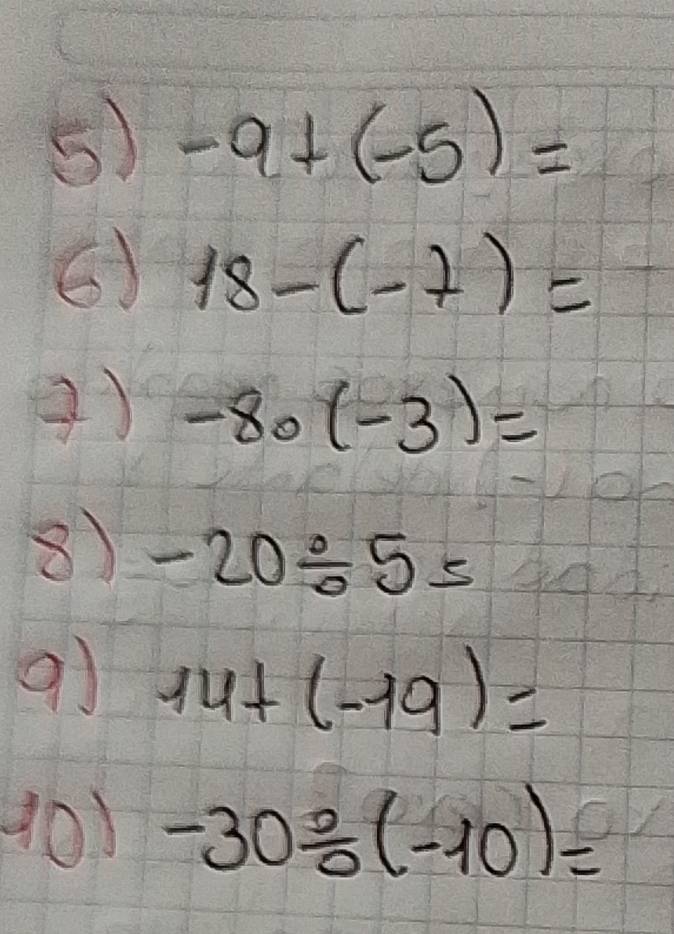 5) -9+(-5)=
6) 18-(-7)=
7) -8∘(-3)=
8) -20÷5=
9) 14+(-19)=
10) -30÷(-10)=